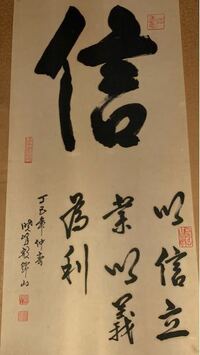 信
以信立
業以義
為利
丁巳年仲春